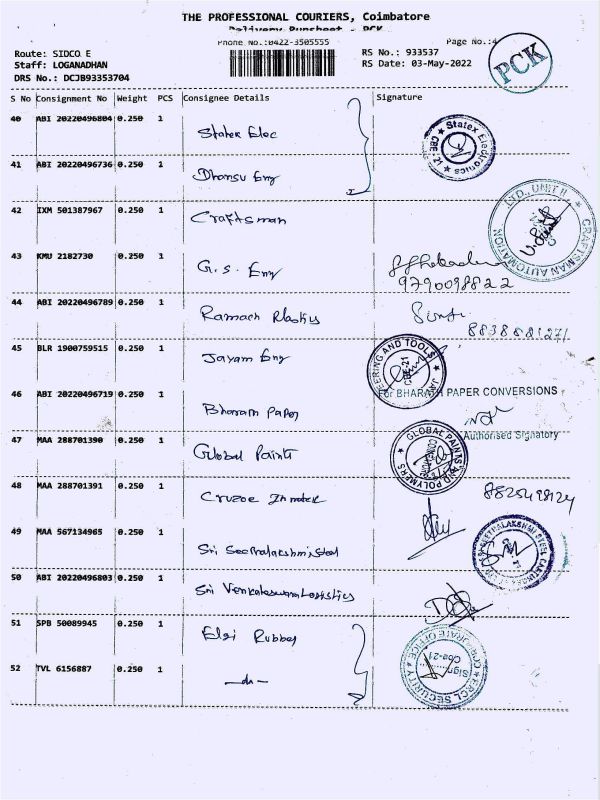 THE PROFESSIONAL COURIERS, Coimbatore
Delivery Runsheet - PCK
Phone No.:0422-3505555
Page No.:4
PCK
Route: SIDCO E
Staff: LOGANADHAN
DRS No.: DCJB93353704
RS No.: 933537
RS Date: 03-May-2022
S No Consignment No Weight PCS Consignee Details Signature
40 ABI 20220496804 0.250 1 Statex Elec
Statex Electronics CBE-21
41 ABI 20220496736 0.250 1 Dhansu Eng
42 IXM 501387967 0.250 1 Craftsman
CRAFTSMAN AUTOMATION LTD., UNIT II
43 KMU 2182730 0.250 1 G.S. Eng
9790098822
44 ABI 20220496789 0.250 1
45 BLR 1900759515 0.250 1 Jayam Eng
AND TOOLS CBE-21
46 ABI 20220496719 0.250 1 Bharath Paper
For BHARATH PAPER CONVERSIONS
Authorised Signatory
47 MAA 288701390 0.250 1 Global Paints
GLOBAL PAINTS AND POLYMERS
48 MAA 288701391 0.250 1 Cruzoe
49 MAA 567134965 0.250 1 Sri Seethalakshmi Steel
50 ABI 20220496803 0.250 1 Sri Venkateswara Logistics
51 SPB 50089945 0.250 1 Elgi Rubber
52 TVL 6156887 0.250 1 -do-
ERCL SECURITY CORPORATE OFFICE
Sign
Cbe-21